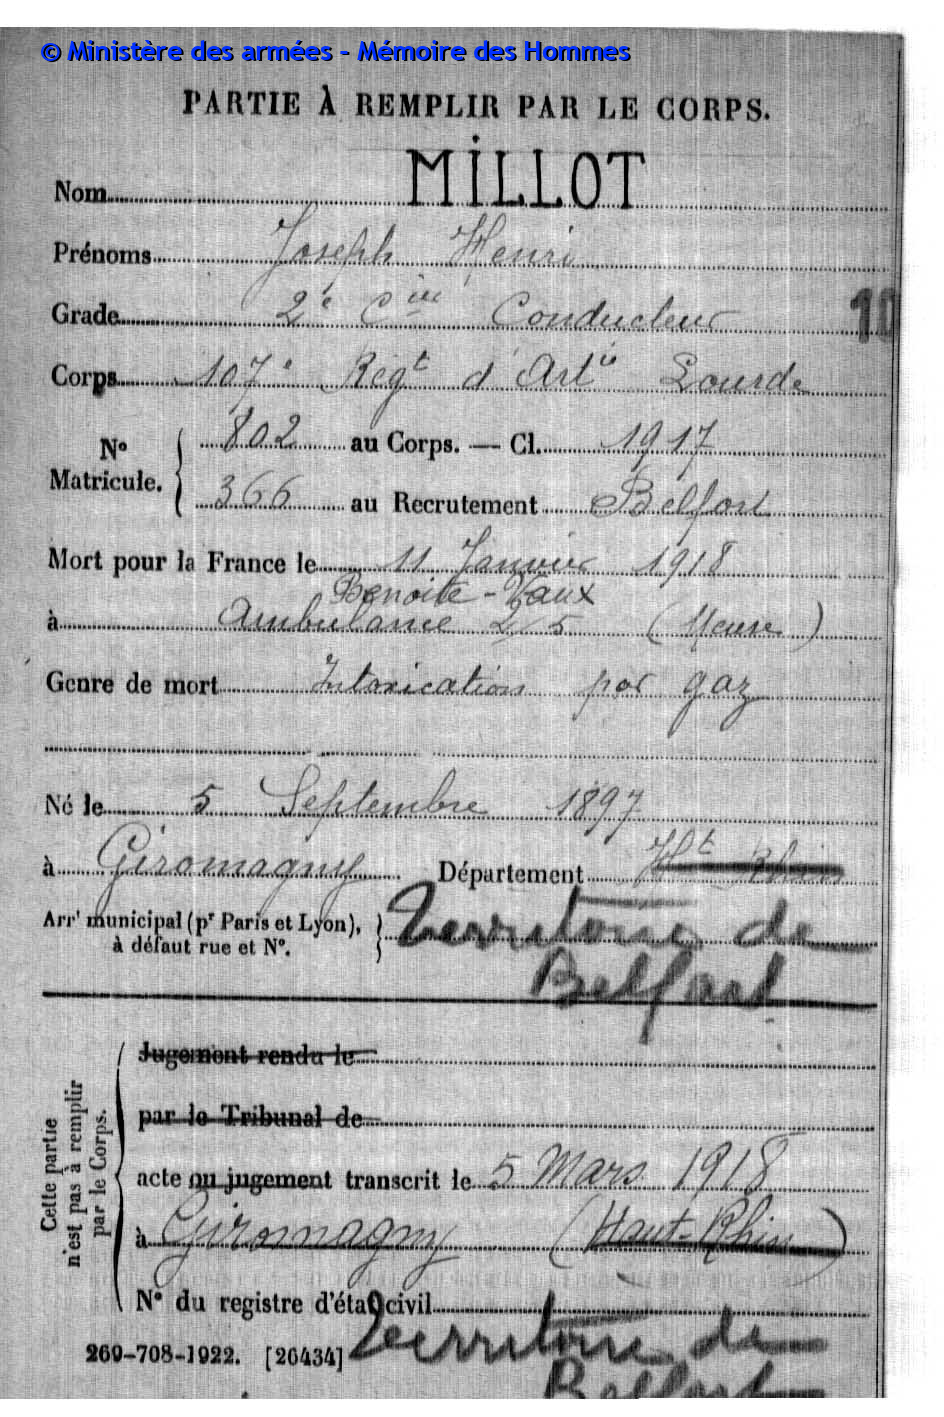 © Ministère des armées - Mémoire des Hommes
PARTIE À REMPLIR PAR LE CORPS.
Nom MILLOT
Prénoms Joseph Henri
Grade 2e Cier Conducteur
10
Corps 107e Régt d'Artie Lourde
No Matricule. 802 au Corps. — Cl. 1917
366 au Recrutement Belfort
Mort pour la France le 11 Janvier 1918
Benoite-Vaux
à Ambulance 2/5 (Meuse)
Genre de mort Intoxication par gaz
Né le 5 Septembre 1897
à Giromagny Département Ht Rhin
Arrt municipal (pr Paris et Lyon), à défaut rue et No. Territoire de
Belfort
Cette partie n'est pas à remplir par le Corps.
Jugement rendu le
par le Tribunal de
acte ou jugement transcrit le 5 Mars 1918
à Giromagny (Haut-Rhin)
No du registre d'état civil
Territoire de
269-708-1922. [26434]
Belfort